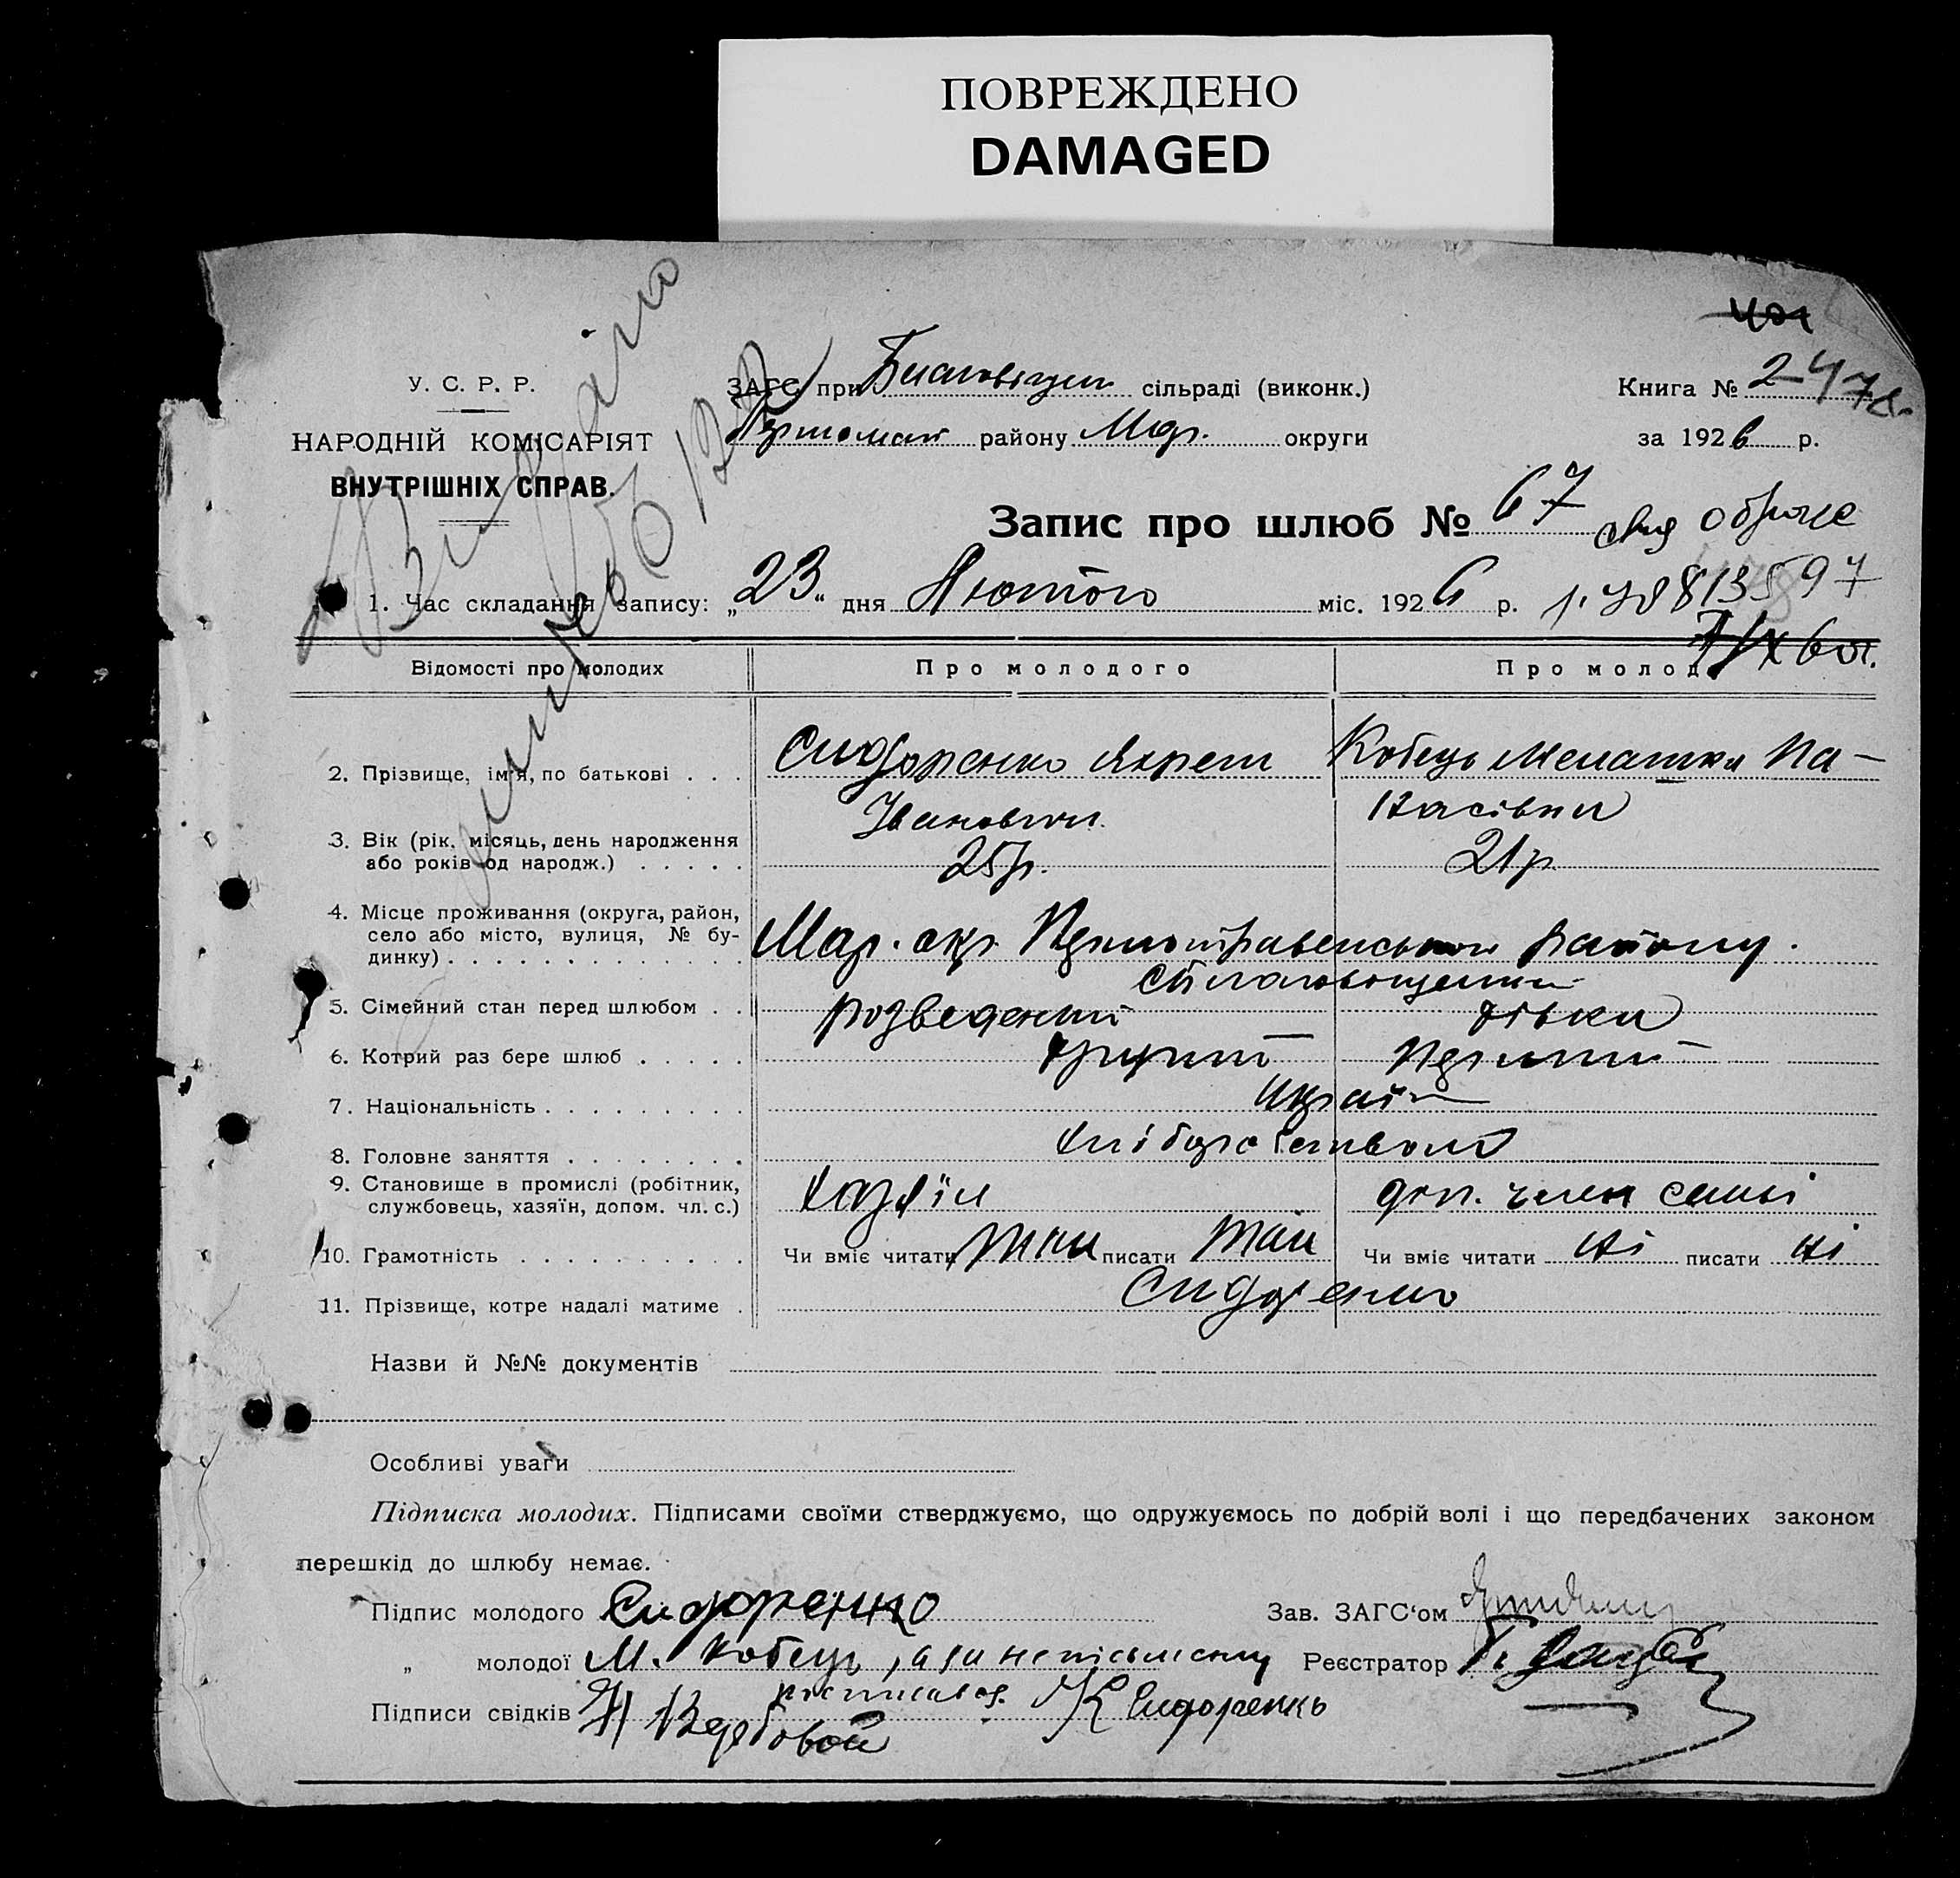 ПОВРЕЖДЕНО
DAMAGED
У. С. Р. Р.
НАРОДНІЙ КОМІСАРІЯТ
ВНУТРІШНІХ СПРАВ.
ЗАГС при сільраді (виконк.)
району Мар. округи
Книга № 247
за 1926 р.
Запис про шлюб № 67
1. Час складання запису: „23“ дня Лютого міс. 1926 р.
Відомості про молодих Про молодого Про молод
2. Прізвище, ім'я, по батькові . . . Сидоренко Кобець Мелашка Па-
Іванович
3. Вік (рік, місяць, день народження
або років од народж.) . . . . . 25 р. 21 р.
4. Місце проживання (округа, район,
село або місто, вулиця, № бу-
динку) . . . . . . . . . . . . . Мар. окр. Першотравенського району.
5. Сімейний стан перед шлюбом . . розведений дівка
6. Котрий раз бере шлюб . . . . . другий перший
7. Національність . . . . . . . . . Україн
8. Головне заняття . . . . . . . .
9. Становище в промислі (робітник,
службовець, хазяїн, допом. чл. с.) хазяїн доп. член сімьі
10. Грамотність . . . . . . . . . . Чи вміє читати так писати так Чи вміє читати ні писати ні
11. Прізвище, котре надалі матиме . Сидоренко
Назви й №№ документів
Особливі уваги
Підписка молодих. Підписами своїми стверджуємо, що одружуємось по добрій волі і що передбачених законом
перешкід до шлюбу немає.
Підпис молодого Сидоренко Зав. ЗАГС'ом
„ молодої М. Кобець, а за неписьмену Реєстратор
росписався
Підписи свідків К Сидоренко